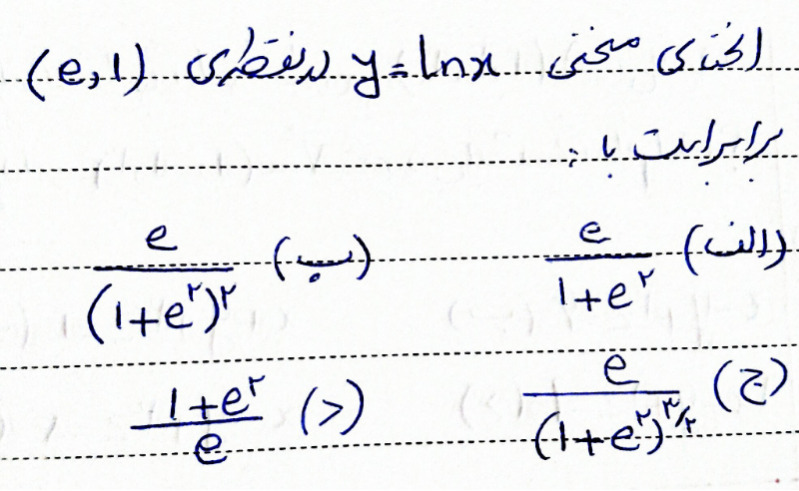 انحنای منحنی y = lnx در نقطه‌ی (e,1)
برابر است با :
الف) e/(1+e^۲) ب) e/(1+e^۲)^۲
ج) e/(1+e^۲)^{۳/۲} د) (1+e^۲)/e